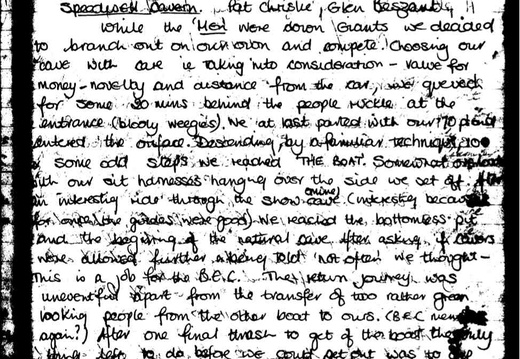 Speedwell Cavern. Pat Christie, Glen
While the 'Men' were down Grants we decided
to branch out on our own and compete. Choosing our
cave with care ie taking into consideration - value for
money - novelty and distance from the car, we queued
for some 20 mins behind the people ruckle at the
entrance (bloody weegies). We at last parted with our 70 pence
entered the orifice. Descending by a familiar technique, 100
& some odd steps we reached 'THE BOAT'. Somewhat
with our sit harnesses hanging over the side we set off
an interesting ride through the show cave (mine) (interesting because
for once the guides were good). We reached the bottomless pit
and the beginning of the natural cave. After asking if cavers
were allowed further & being told 'not often' we thought -
This is a job for the B.E.C. The return journey was
uneventful apart from the transfer of two rather green
looking people from the other boat to ours. (BEC
again?) After one final thrash to get of the boat the only
thing left to do before we could get out was